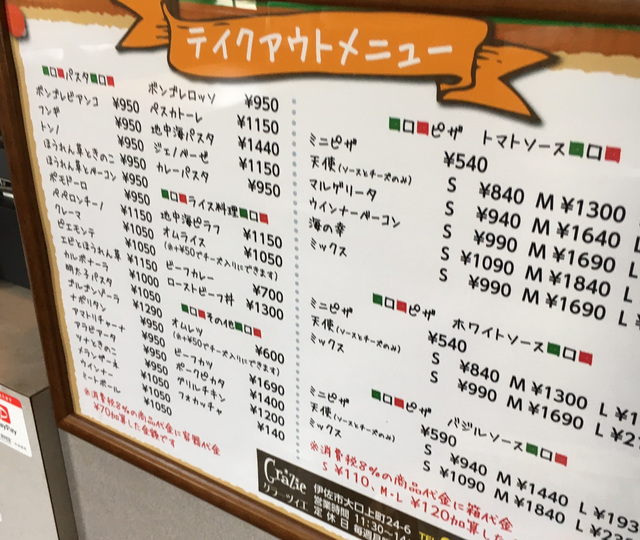 テイクアウトメニュー
パスタ
ボンゴレビアンコ ¥950
フンギ ¥950
トンノ ¥950
ほうれん草ときのこ ¥950
ほうれん草とベーコン ¥950
ポモドーロ ¥950
ペペロンチーノ ¥950
クレーマ ¥1150
ピエモンテ ¥1050
エビとほうれん草 ¥1050
カルボナーラ ¥1150
明太子パスタ ¥1000
ゴルゴンゾーラ ¥1050
ナポリタン ¥1290
アマトリチャーナ ¥950
アラビアータ ¥950
ツナときのこ ¥950
メランザーネ ¥950
ウインナー ¥1050
ミートボール ¥1050
※消費税8%の商品代金に容器代金
¥70加算した金額です
ボンゴレロッソ ¥950
ペスカトーレ ¥1150
地中海パスタ ¥1440
ジェノベーゼ ¥1150
カレーパスタ ¥950
ライス料理
地中海ピラフ ¥1150
オムライス ¥1050
(※+¥50でチーズ入りにできます)
ビーフカレー ¥700
ローストビーフ丼 ¥1300
その他
オムレツ ¥600
(※+¥50でチーズ入りにできます)
ビーフカツ ¥1690
ポークピカタ ¥1400
グリルチキン ¥1200
フォカッチャ ¥140
ピザ トマトソース
ミニピザ ¥540
天使(ソースとチーズのみ) S ¥840 M ¥1300
マルゲリータ S ¥940 M ¥1640 L
ウインナーベーコン S ¥990 M ¥1690 L
海の幸 S ¥1090 M ¥1840 L
ミックス S ¥990 M ¥1690 L
ピザ ホワイトソース
ミニピザ ¥540
天使(ソースとチーズのみ) S ¥840 M ¥1300 L ¥1
ミックス S ¥990 M ¥1690 L ¥2
ピザ バジルソース
ミニピザ ¥590
天使(ソースとチーズのみ) S ¥940 M ¥1440 L ¥193
ミックス S ¥1090 M ¥1840 L ¥2
※消費税8%の商品代金に箱代金
S ¥110、M・L ¥120加算した
Grazie
グラーツィエ
伊佐市大口上町24-6
営業時間 11:30~14
定休日 毎週